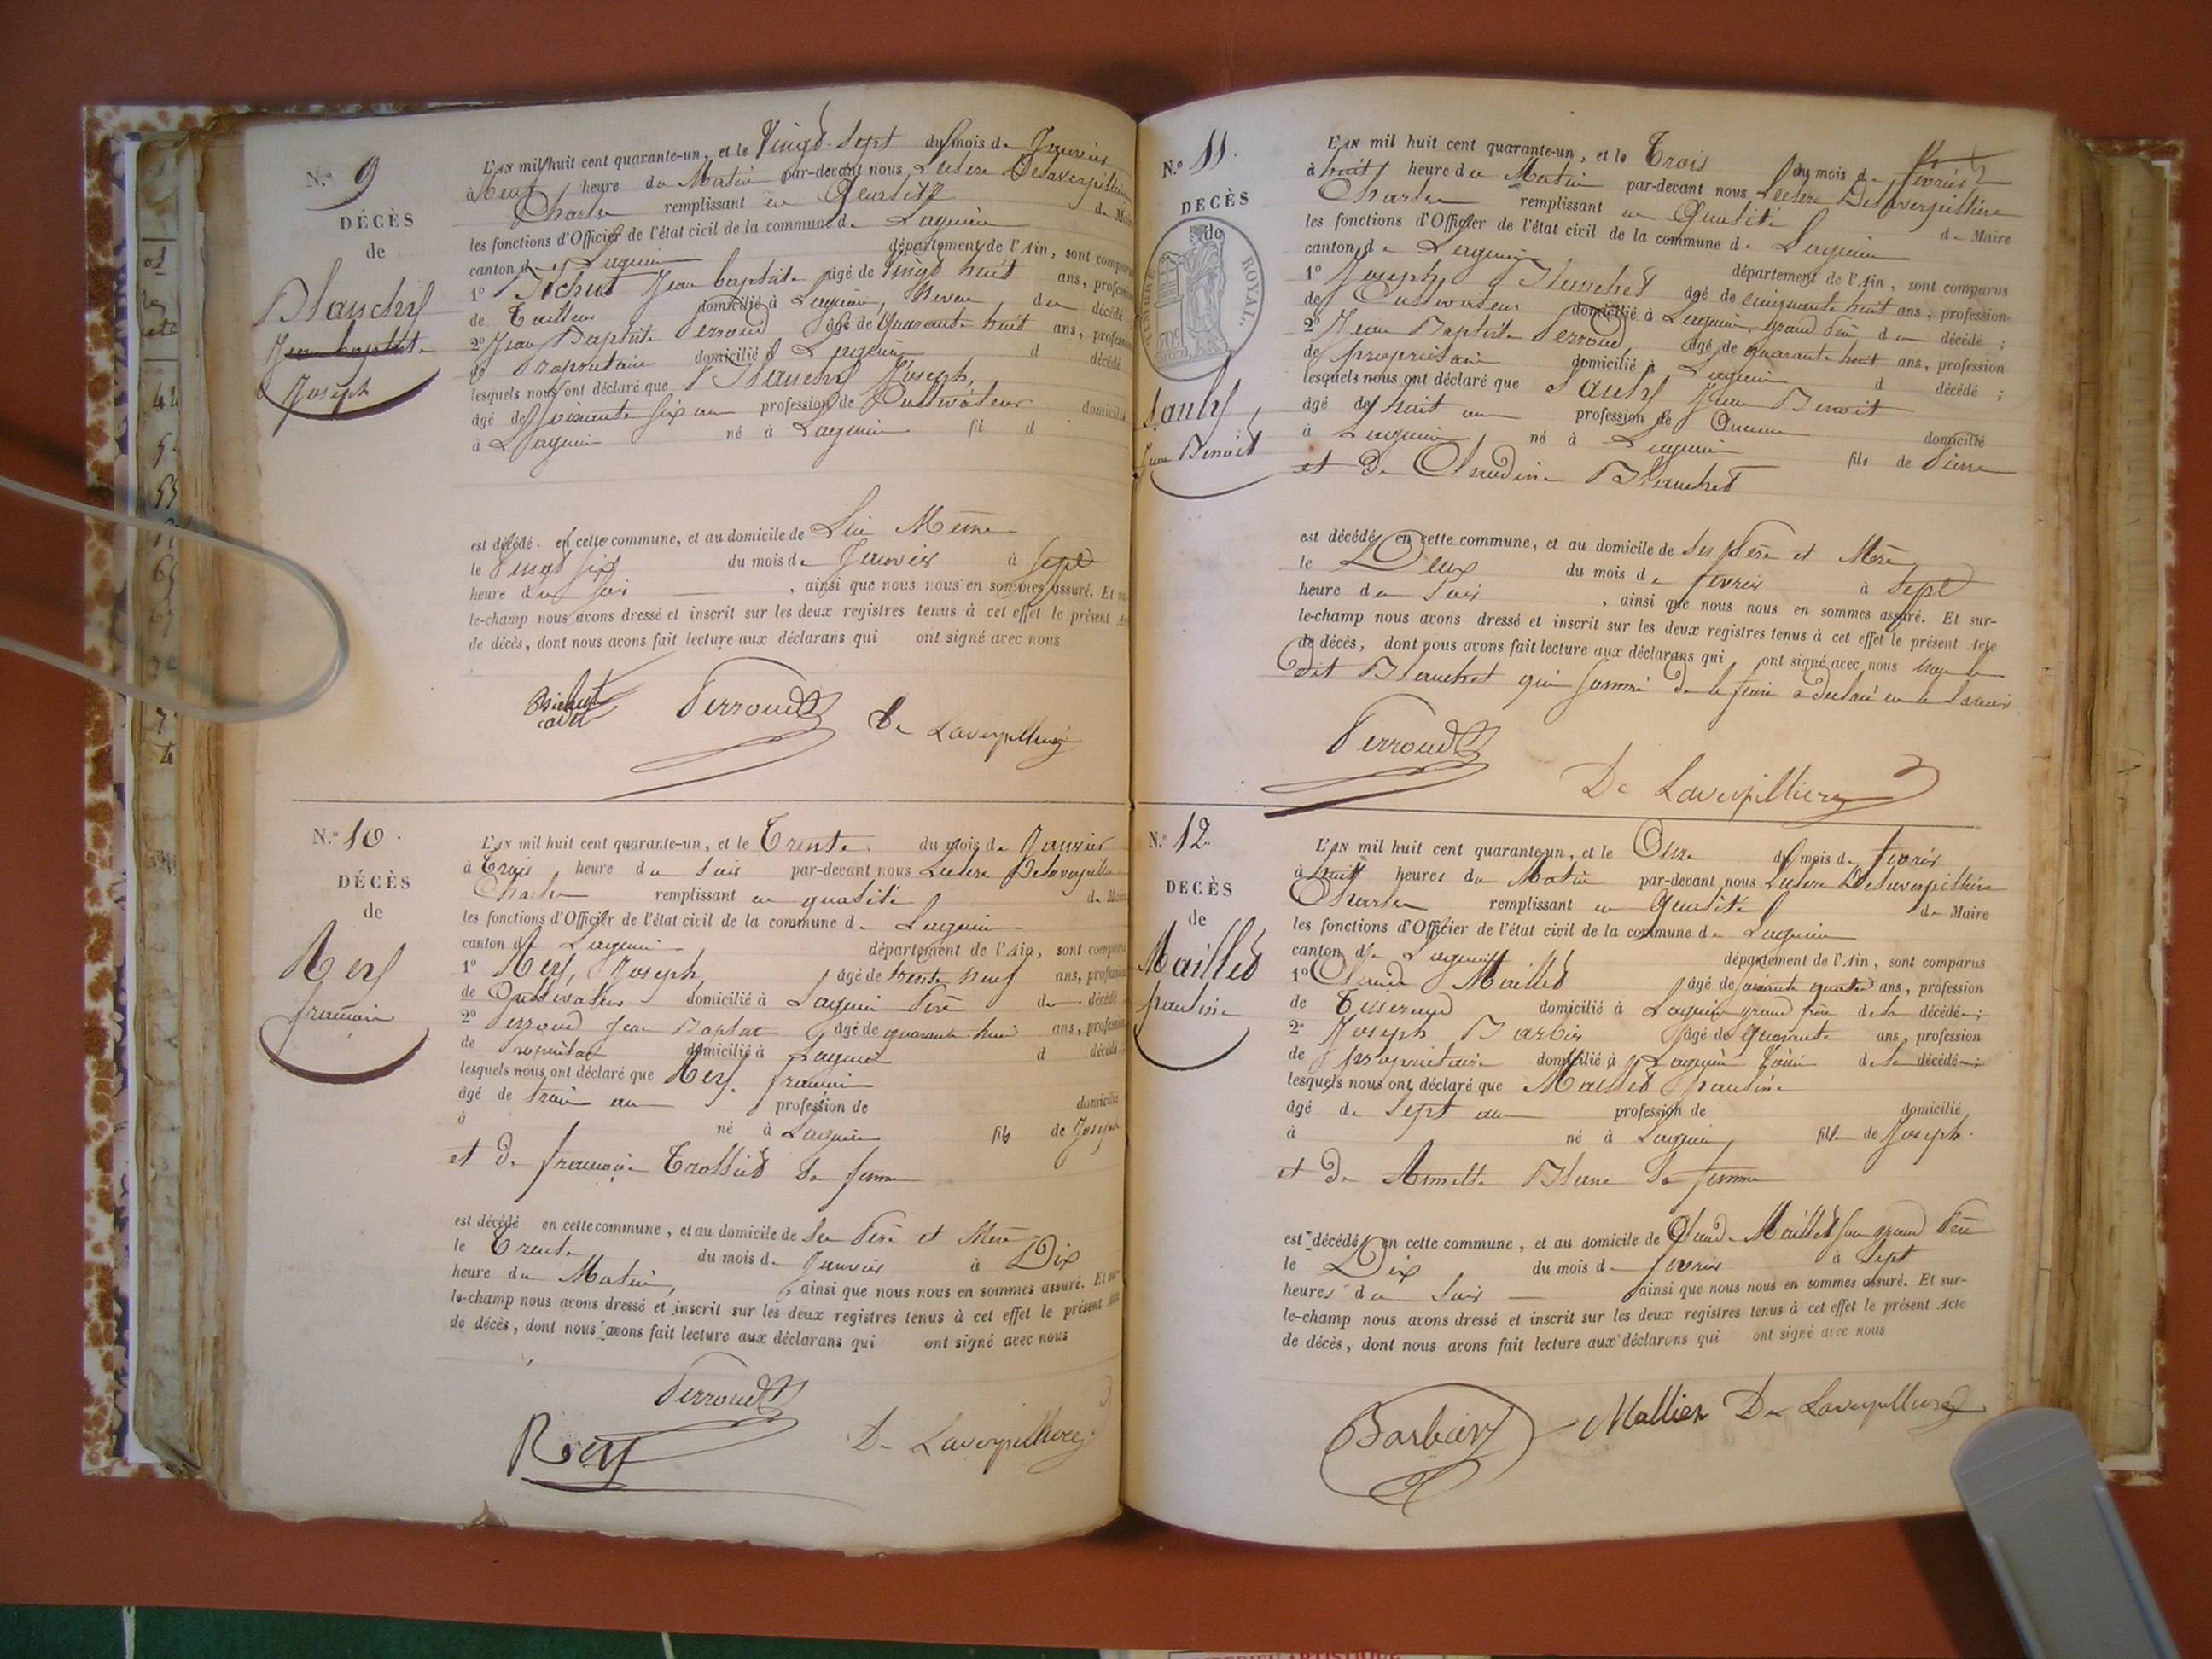 N.° 9
DÉCÈS
de
Blanchy
Jean baptiste
Joseph
L'AN mil huit cent quarante-un, et le Vingt-Sept du mois de Janvier
à neuf heure du Matin par-devant nous Leclere Delaverpilliere
Charles remplissant en Qualité de Maire
les fonctions d'Officier de l'état civil de la commune de Lagnieu
canton de Lagnieu département de l'Ain, sont comparus
1° Jean baptiste âgé de Vingt huit ans, profession
de Tailleur domicilié à Lagnieu, Neveu du décédé
2° Jean Baptiste Perroud âgé de Quarante huit ans, profession
de Propriétaire domicilié à Lagnieu d décédé
lesquels nous ont déclaré que Joseph
âgé de Soixante Six ans profession de Cultivateur domicilié
à Lagnieu né à Lagnieu fil d
est décédé en cette commune, et au domicile de Lui Même
le Vingt Six du mois de Janvier à Sept
heure du Soir , ainsi que nous nous en sommes assuré. Et sur-
le-champ nous avons dressé et inscrit sur les deux registres tenus à cet effet le présent Acte
de décès, dont nous avons fait lecture aux déclarans qui ont signé avec nous
Perroud De Laverpilliere
N.° 10
DÉCÈS
de
Rey
francois
L'AN mil huit cent quarante-un, et le Trente du mois de Janvier
à Trois heure du Soir par-devant nous Leclere Delaverpilliere
Charles remplissant en qualité de Maire
les fonctions d'Officier de l'état civil de la commune de Lagnieu
canton de Lagnieu département de l'Ain, sont comparus
1° Rey, Joseph, âgé de trente neuf ans, profession
de Cultivateur domicilié à Lagnieu Père du décédé
2° Perroud Jean Baptiste âgé de quarante huit ans, profession
de Propriétaire domicilié à Lagnieu d décédé
lesquels nous ont déclaré que Rey francois
âgé de trois ans profession de domicilié
à né à Lagnieu fils de Joseph
et de francoise Trolliet Sa femme
est décédé en cette commune, et au domicile de Ses Père et Mère
le Trente du mois de Janvier à Dix
heure du Matin, , ainsi que nous nous en sommes assuré. Et sur-
le-champ nous avons dressé et inscrit sur les deux registres tenus à cet effet le présent Acte
de décès, dont nous avons fait lecture aux déclarans qui ont signé avec nous
Perroud
Rey De Laverpilliere
N.° 11.
DÉCÈS
de
TIMBRE ROYAL.
70c
Jean Benoit
L'AN mil huit cent quarante-un, et le Trois du mois de fevrier
à huit heure du Matin par-devant nous Leclere Delaverpilliere
Charles remplissant en Qualité de Maire
les fonctions d'Officier de l'état civil de la commune de Lagnieu
canton de Lagnieu département de l'Ain, sont comparus
1° Joseph Blanchet âgé de cinquante huit ans, profession
de Cultivateur domicilié à Lagnieu, grand Père du décédé ;
2° Jean Baptiste Perroud âgé de quarante huit ans, profession
de propriétaire domicilié à Lagnieu d décédé ;
lesquels nous ont déclaré que Jean Benoit
âgé de huit ans profession de Aucune domicilié
à Lagnieu, né à Lagnieu fils de Pierre
et de Claudine Blanchet
est décédé en cette commune, et au domicile de Ses Père et Mère
le Deux du mois de fevrier à Sept
heure du Soir , ainsi que nous nous en sommes assuré. Et sur-
le-champ nous avons dressé et inscrit sur les deux registres tenus à cet effet le présent Acte
de décès, dont nous avons fait lecture aux déclarans qui ont signé avec nous
dit Blanchet qui Sommé de le faire a declaré ne le Savoir
Perroud
De Laverpilliere
N.° 12.
DECÈS
de
Maillet
pauline
L'AN mil huit cent quarante-un, et le Onze du mois de fevrier
à huit heures du Matin par-devant nous Leclere Delaverpilliere
Charles remplissant en Qualité de Maire
les fonctions d'Officier de l'état civil de la commune de Lagnieu
canton de Lagnieu département de l'Ain, sont comparus
1° Claude Maillet âgé de soixante quatre ans, profession
de Tisserand domicilié à Lagnieu grand père de la décédée ;
2° Joseph Barbier âgé de Quarante ans, profession
de propriétaire domicilié à Lagnieu Voisin de la décédée ;
lesquels nous ont déclaré que Maillet pauline
âgé de Sept ans profession de domicilié
à né à Lagnieu, fille de Joseph.
et de Annette Blanc Sa femme
est décédée en cette commune, et au domicile de Claude Maillet Son grand Père
le Dix du mois de fevrier à Sept
heures du Soir ainsi que nous nous en sommes assuré. Et sur-
le-champ nous avons dressé et inscrit sur les deux registres tenus à cet effet le présent Acte
de décès, dont nous avons fait lecture aux déclarans qui ont signé avec nous
Mallier De Laverpilliere